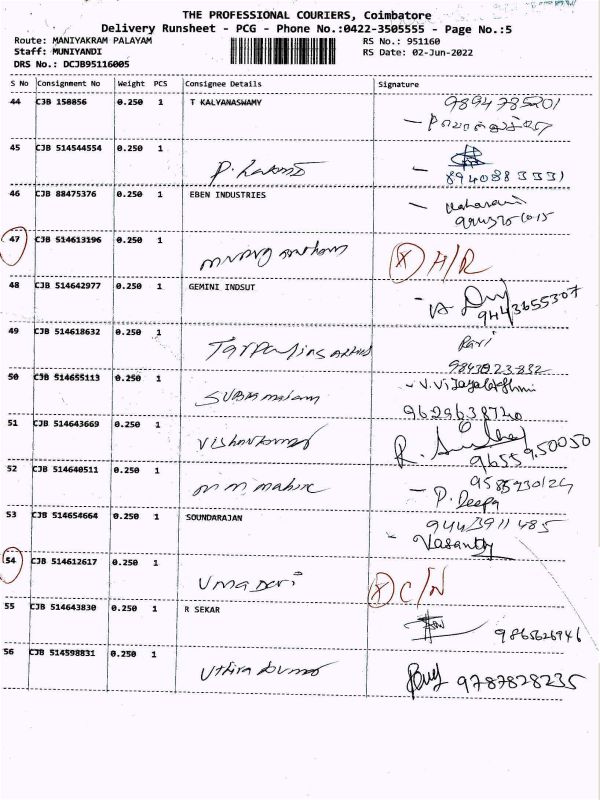 THE PROFESSIONAL COURIERS, Coimbatore
Delivery Runsheet - PCG - Phone No.:0422-3505555 - Page No.:5
Route: MANIYAKRAM PALAYAM RS No.: 951160
Staff: MUNIYANDI RS Date: 02-Jun-2022
DRS No.: DCJB95116005
S No Consignment No Weight PCS Consignee Details Signature
44 CJB 150856 0.250 1 T KALYANASWAMY 9894785201
45 CJB 514544554 0.250 1
8940883331
46 CJB 88475376 0.250 1 EBEN INDUSTRIES
47 CJB 514613196 0.250 1
X A/R
48 CJB 514642977 0.250 1 GEMINI INDSUT
9443655307
49 CJB 514618632 0.250 1 Pari
50 CJB 514655113 0.250 1 V. Vijayalakshmi
9629638720
51 CJB 514643669 0.250 1
9655950050
52 CJB 514640511 0.250 1
P. Deepa
53 CJB 514654664 0.250 1 SOUNDARAJAN 9443911485
Vasanthy
54 CJB 514612617 0.250 1
Uma Devi X C/N
55 CJB 514643830 0.250 1 R SEKAR
9865626946
56 CJB 514598831 0.250 1
9787828235